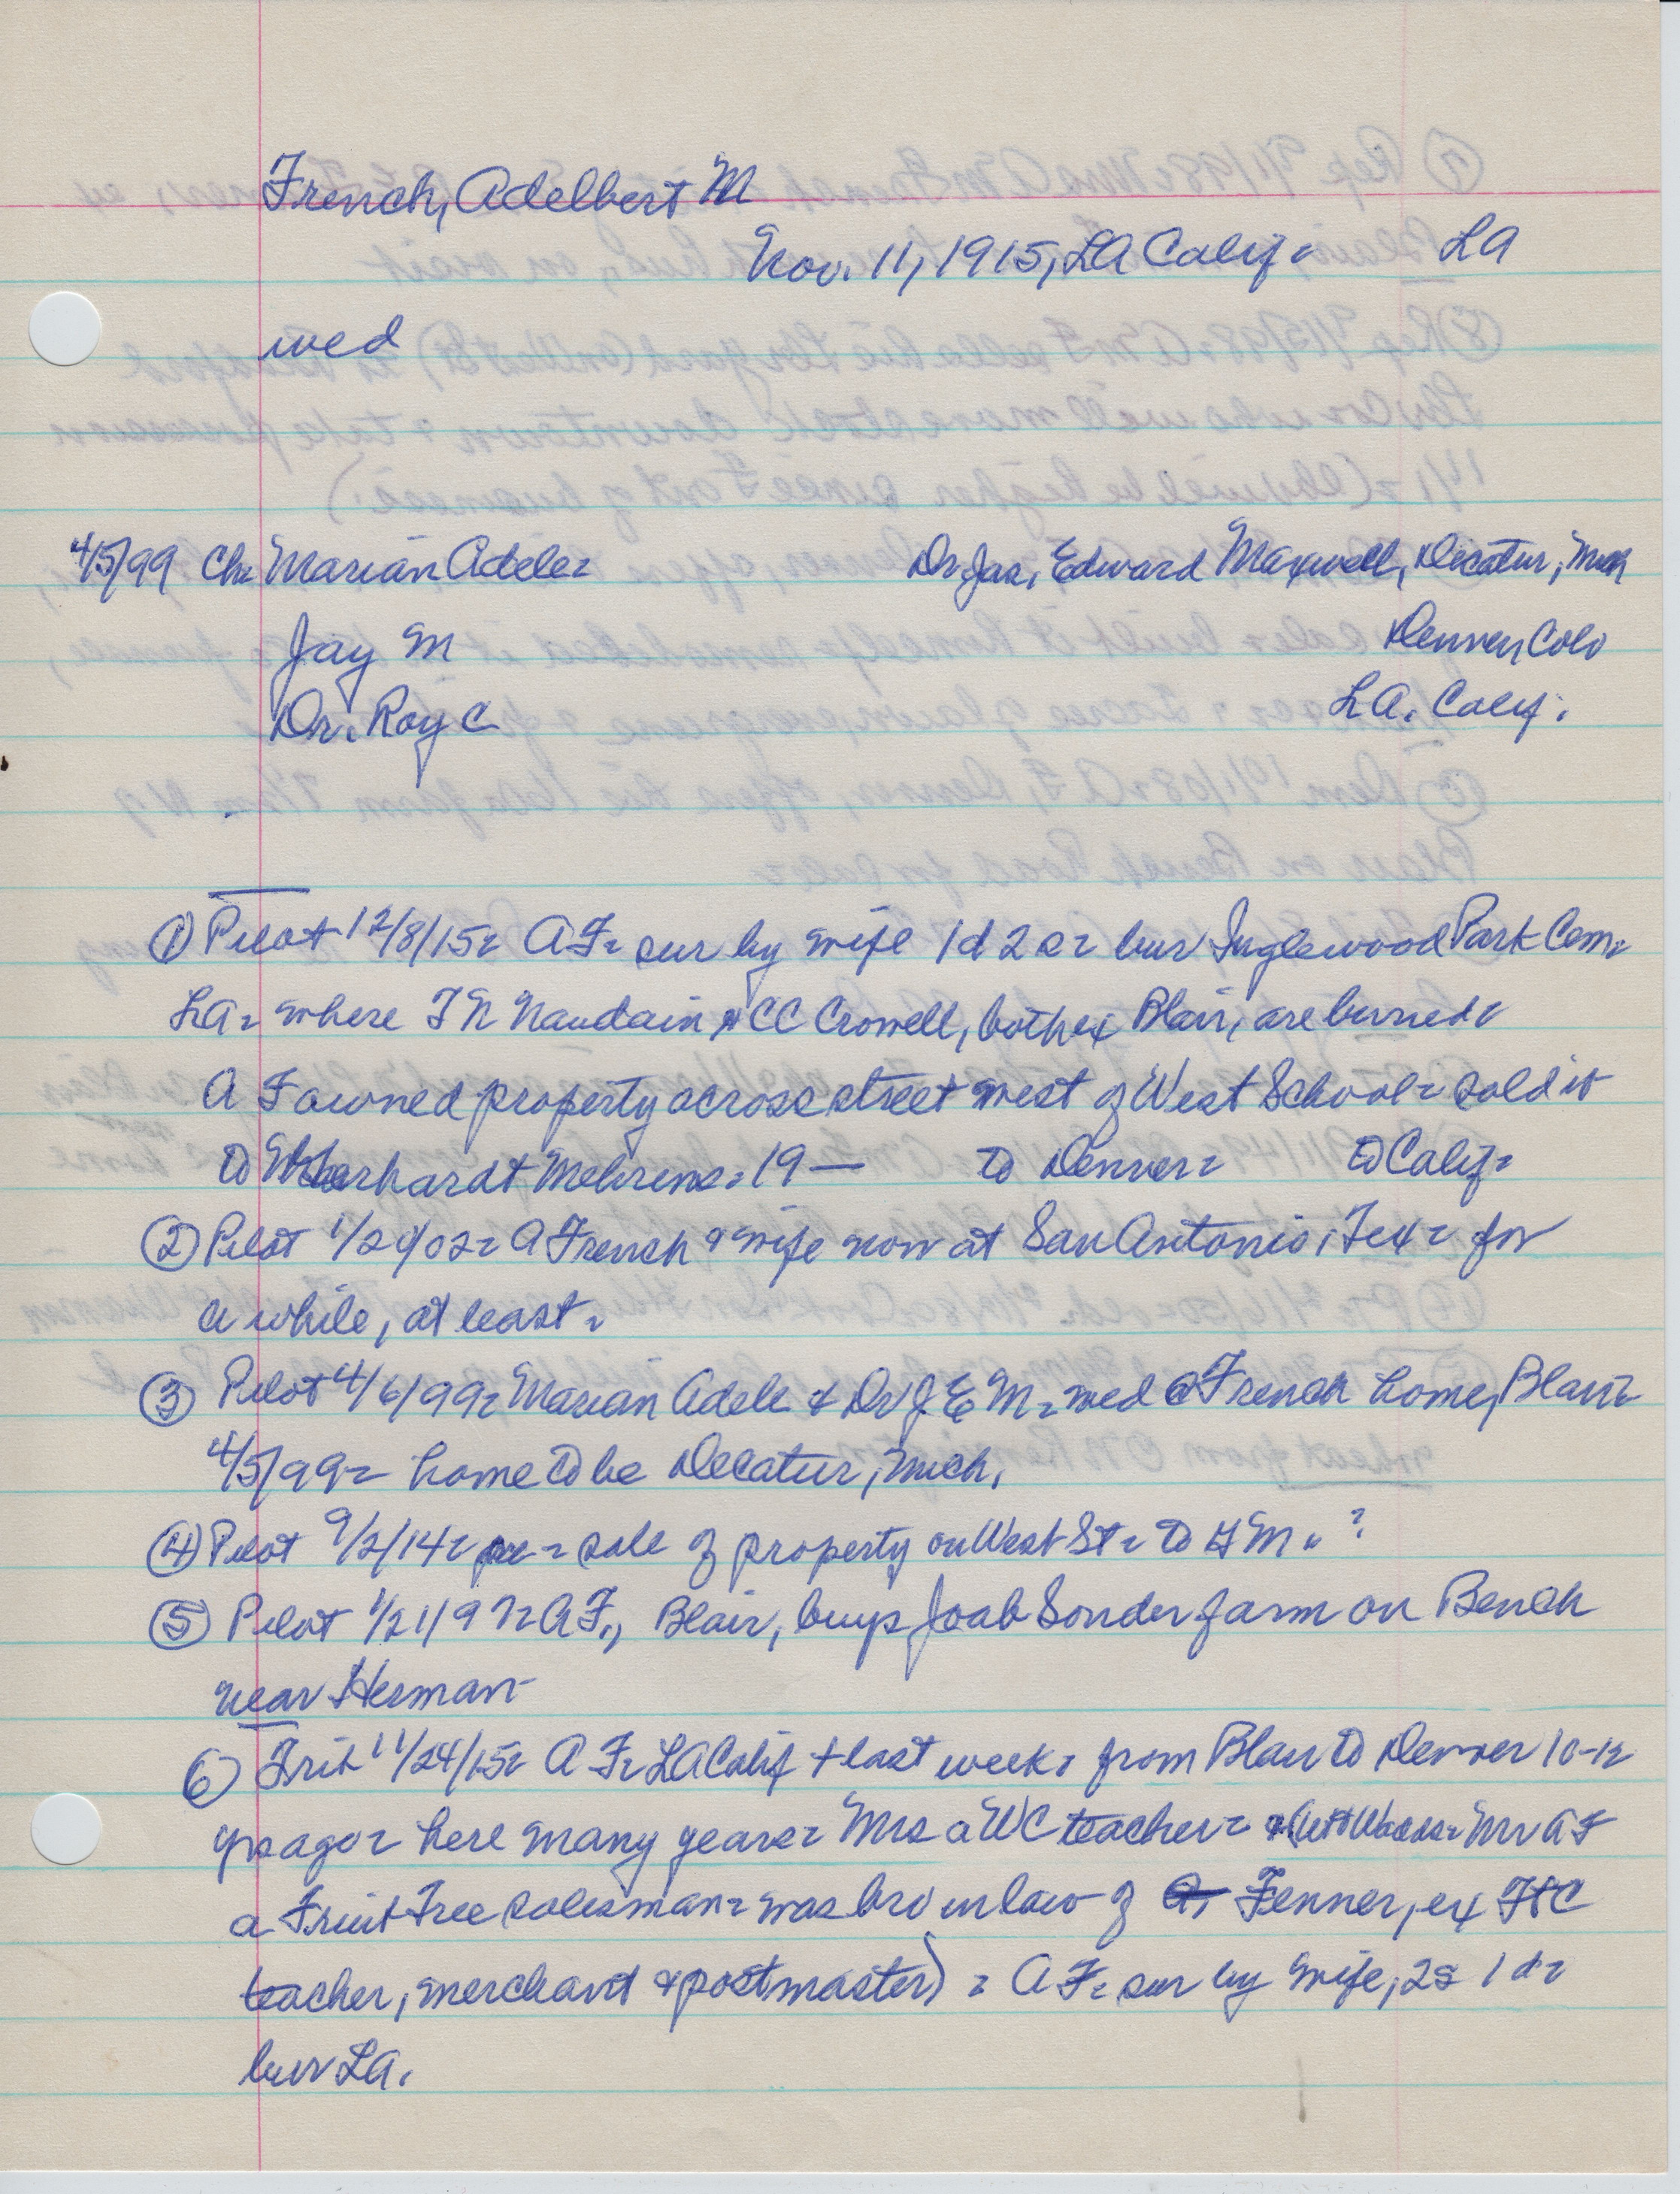 French, Adelbert M
Nov. 11, 1915, LA Calif - LA
wed
4/5/99 Ch- Marian Adele- Dr Jas. Edward Maxwell, Decatur, Mich
Jay M Denver, Colo
Dr. Roy C L.A. Calif.
① Pilot 12/8/15- A F- sur by wife 1d 2 s- bur Inglewood Park Cem-
LA- where T N Naudain & CC Crowell, both ex Blair, are buried-
A F owned property across street west of West School- sold it
to Mehrens- 19— to Denver- to Calif-
② Pilot A French & wife now at San Antonio, Tex- for
a while, at least-
③ Pilot 4/6/99- Marian Adele & Dr J E M- wed @ French home, Blair-
4/5/99- home to be Decatur, Mich.
④ Pilot 9/2/14- sale of property on West St- to H M- ?
⑤ Pilot 1/21/97- A F., Blair, buys Joab Sonder farm on Bench
near Herman-
⑥ Trib 11/24/15- A F- LA Calif + last week- from Blair to Denver 10-12
yrs ago- here many years- Mrs a WC teacher- Mr A F
a Fruit Tree salesman- was bro in law of Fenner, ex
teacher, merchant & postmaster) - A F- sur by wife, 2s 1d-
bur LA.